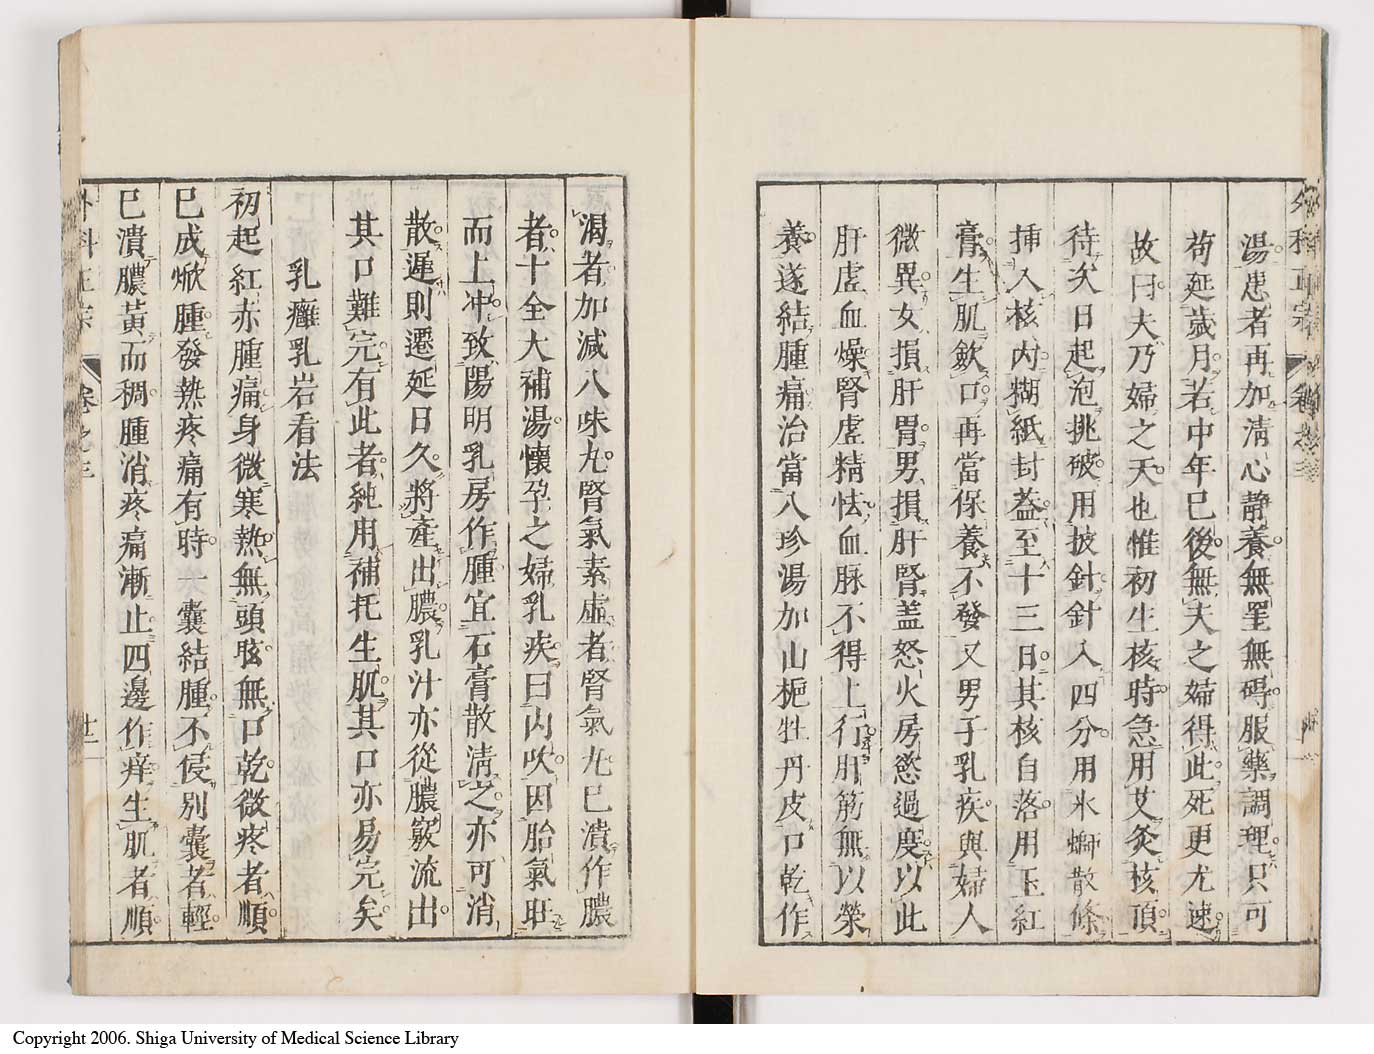 湯患者再加淸心靜養無罣無碍服藥調理只可
苟延歲月若中年已後無夫之婦得此死更尤速
故曰夫乃婦之天也惟初生核時急用艾灸核頂
待次日起泡挑破用披針針入四分用氷螄散條
揷入核內糊紙封葢至十三日其核自落用玉紅
膏生肌歛口再當保養不發又男子乳疾與婦人
微異女損肝胃男損肝腎盖怒火房慾過度以此
肝虛血燥腎虛精怯血脉不得上行肝筋無以榮
養遂結腫痛治當八珍湯加山梔牡丹皮口乾作
渴者加減八味丸腎氣素虛者腎氣丸已潰作膿
者十全大補湯懷孕之婦乳疾曰內吹因胎氣旺
而上冲致陽明乳房作腫宜石膏散淸之亦可消
散遲則遷延日久將產出膿乳汁亦從膿竅流出
其口難完有此者純用補托生肌其口亦易完矣
乳癰乳岩看法
初起紅赤腫痛身微寒熱無頭眩無口乾微疼者順
已成焮腫發熱疼痛有時一囊結腫不侵別囊者輕
已潰膿黃而稠腫消疼痛漸止四邊作痒生肌者順
外科正宗 卷之三 廿二
Copyright 2006. Shiga University of Medical Science Library